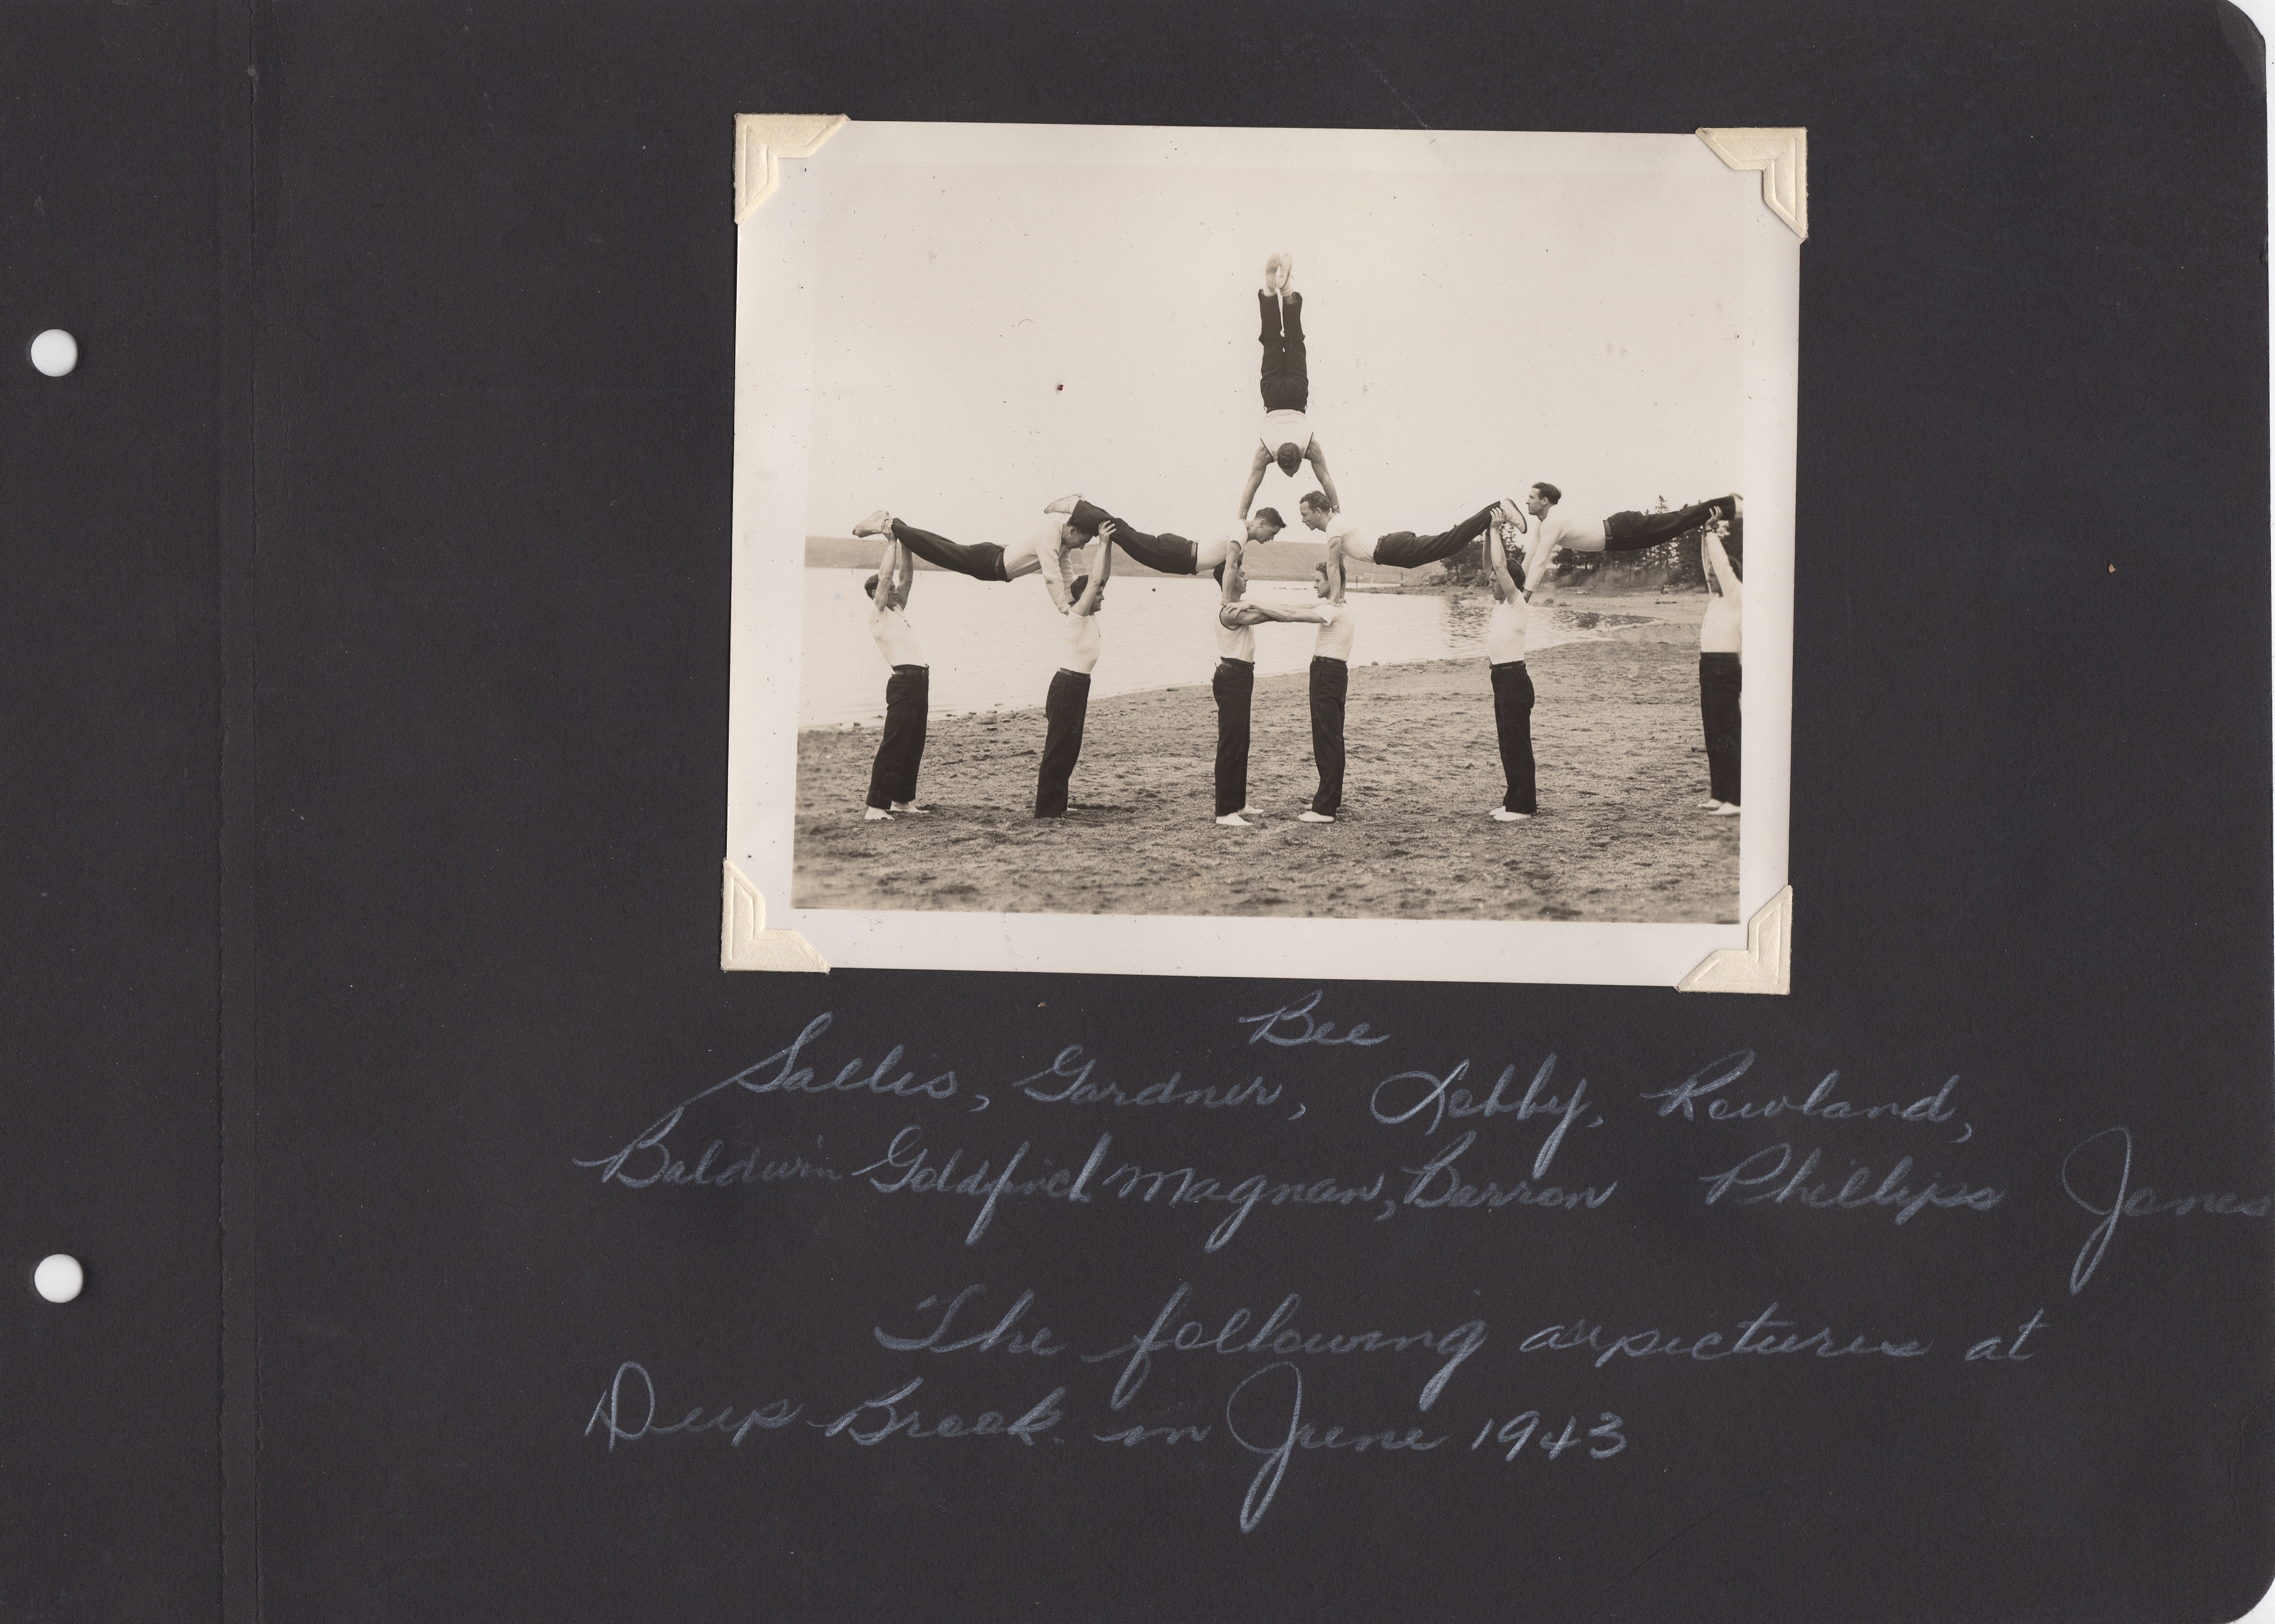 Bee
Salles, Gardner, Lebby, Rowland,
Baldwin Goldfinch Magnan, Barron Phillips Jones
The following are pictures at
Deep Brook in June 1943